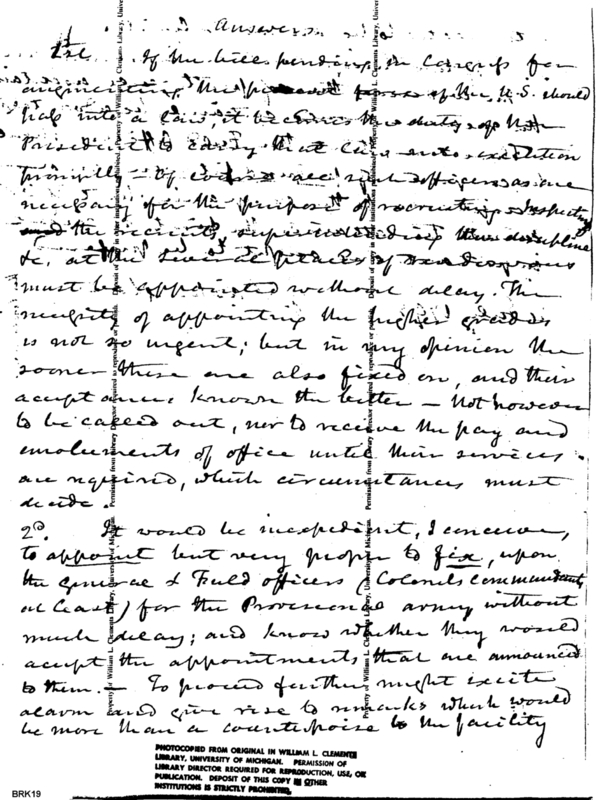 Answers
1st. If the bill pending in Congress for
augmenting the present force of the U.S. should
pass into a law, it becomes the duty of the
President to carry that law into execution
promptly – Of course all such officers as are
necessary for the purpose of recruiting, Inspecting
the recruits, superintending their discipline
&c, at the several places of rendezvous
must be appointed without delay. The
necessity of appointing the higher grades
is not so urgent; but in my opinion the
sooner these are also fixed on, and their
acceptance known the better – Not however
to be called out, nor to receive the pay and
emoluments of office until their services
are required, which circumstances must
decide.
2d. It would be inexpedient, I conceive,
to appoint but very proper to fix, upon
the general & Field officers (Colonels commandants
at least) for the Provisional army without
much delay; and know whether they would
accept the appointments that are announced
to them. – To proceed further might excite
alarm and give rise to remarks which would
be more than a counterpoise to the facility
PHOTOCOPIED FROM ORIGINAL IN WILLIAM L. CLEMENTS
LIBRARY, UNIVERSITY OF MICHIGAN. PERMISSION OF
LIBRARY DIRECTOR REQUIRED FOR REPRODUCTION, USE, OR
PUBLICATION. DEPOSIT OF THIS COPY IN OTHER
INSTITUTIONS IS STRICTLY PROHIBITED.
BRK19
Property of William L. Clements Library, University of Michigan. Permission from Library Director required to reproduce or publish. Deposit of copy in other institutions prohibited.